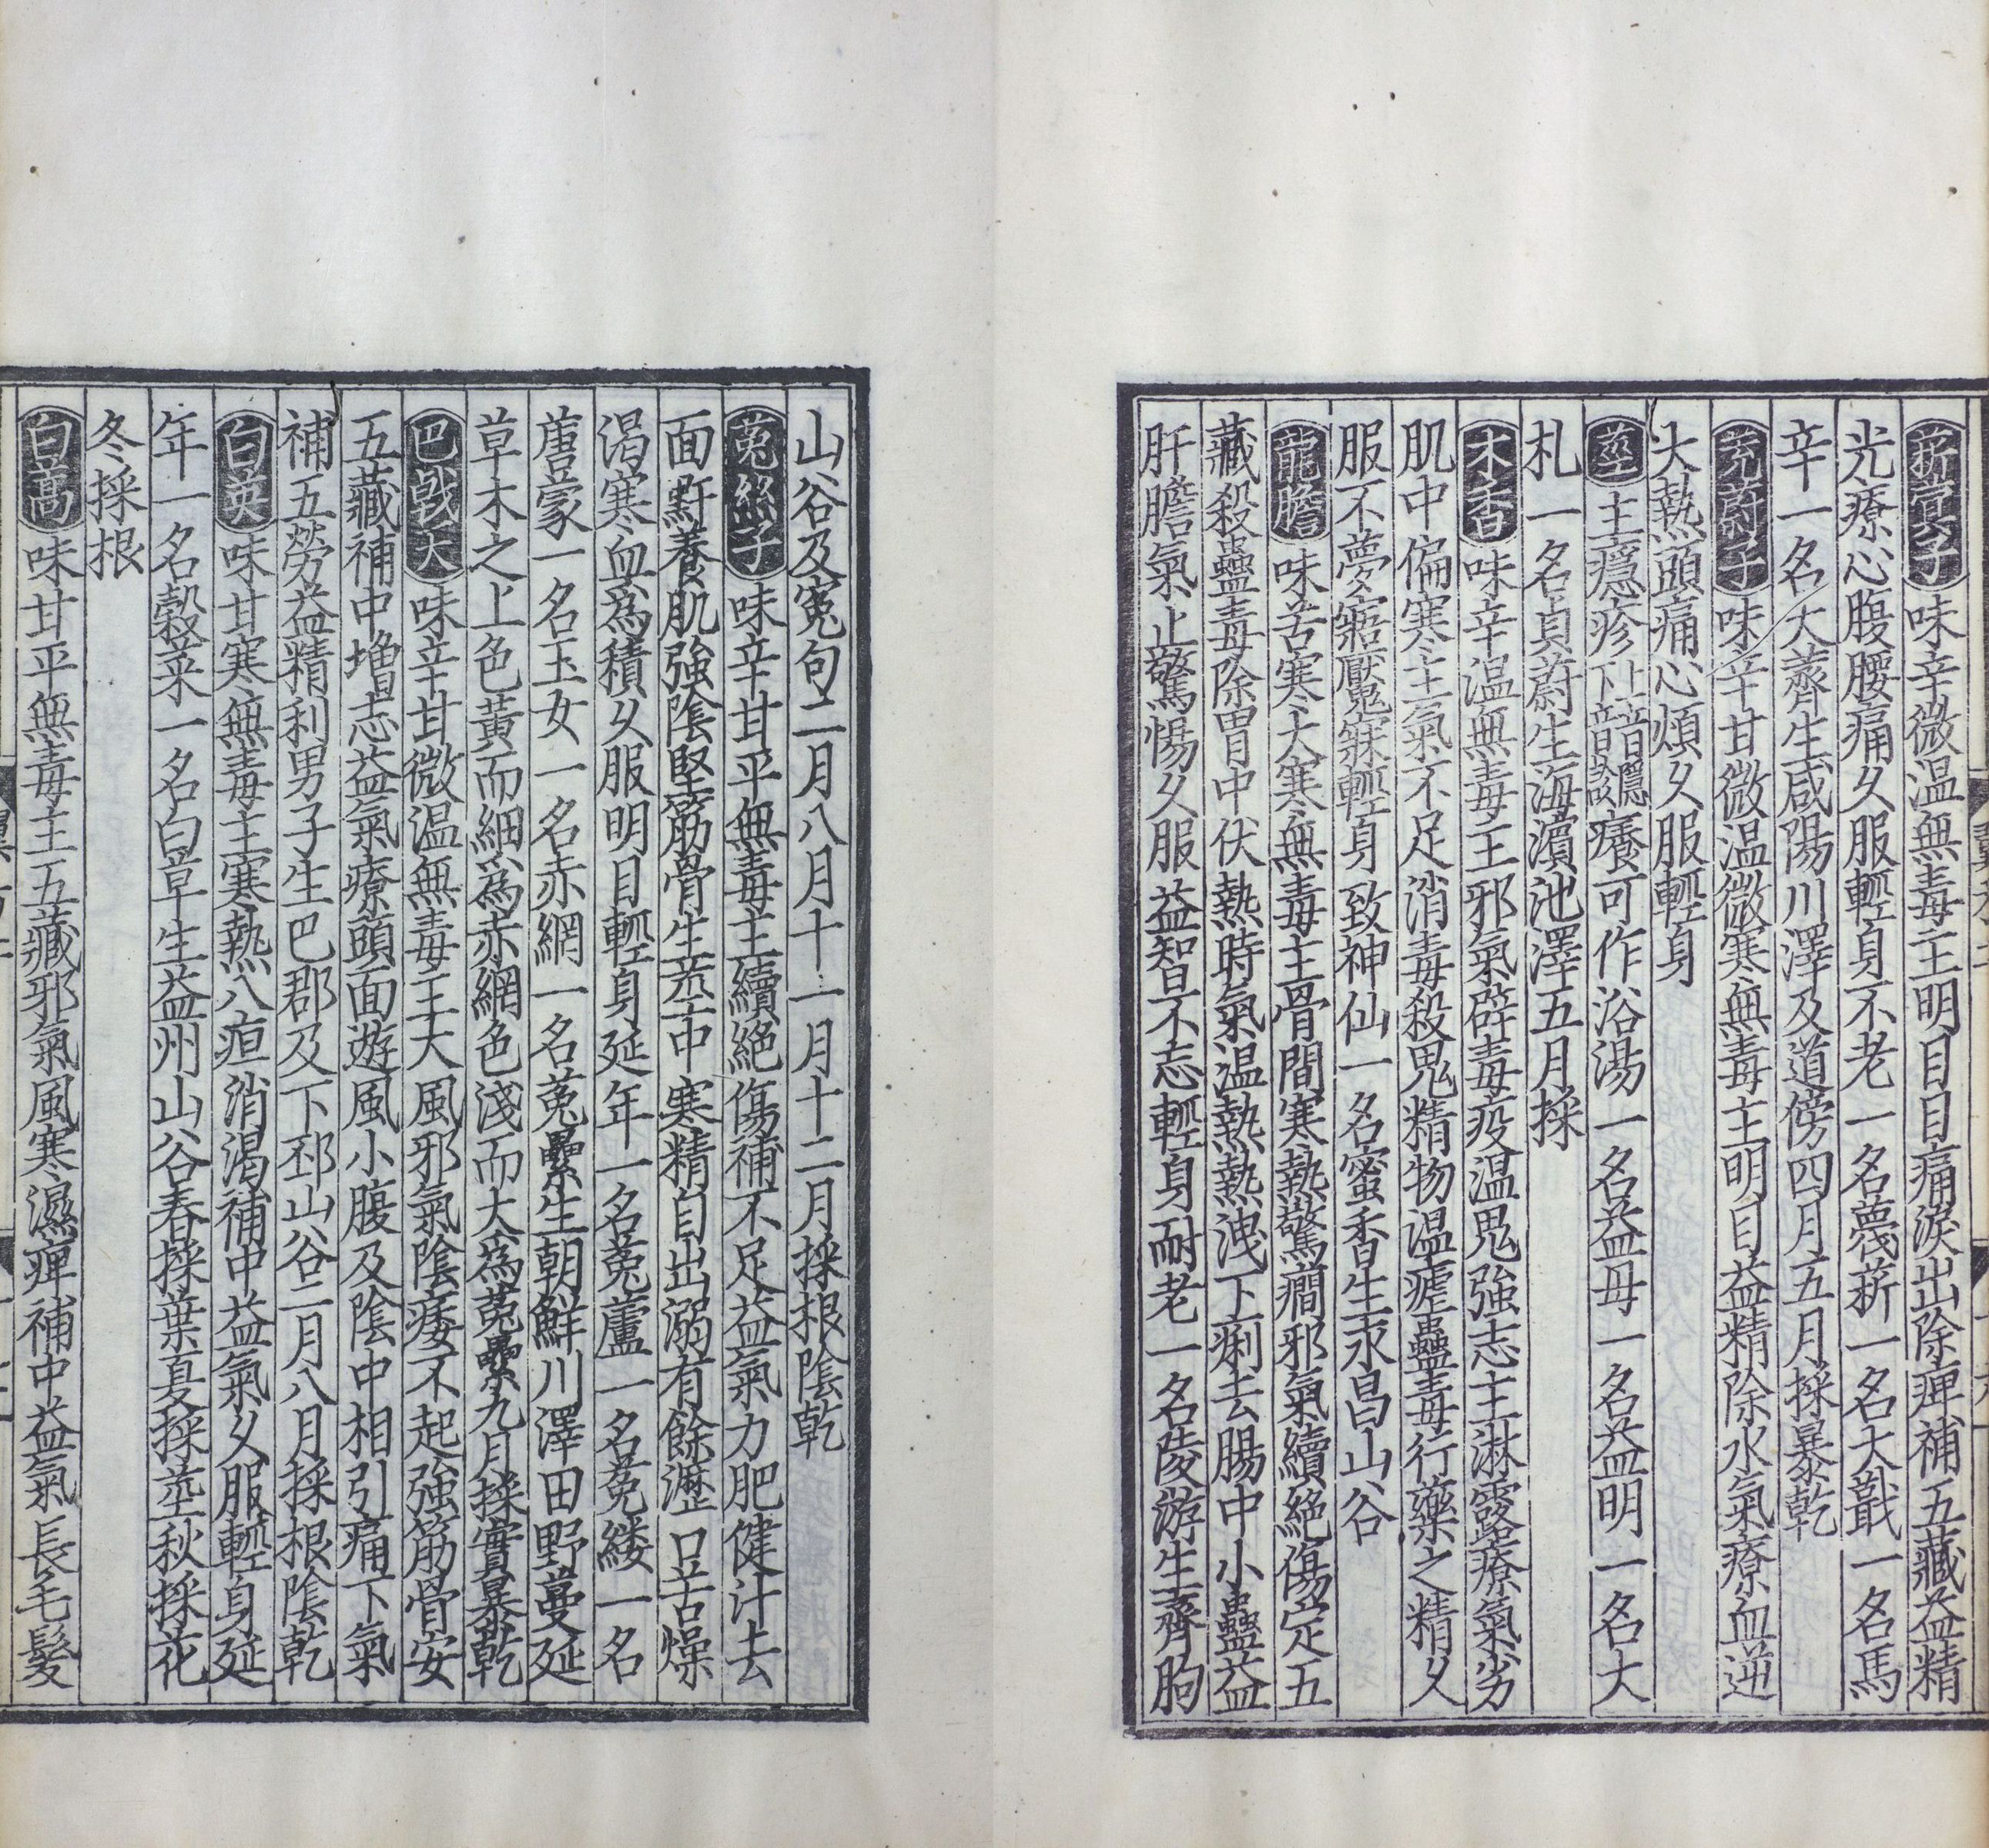 菥蓂子味辛微温無毒主明目目痛淚出除痺補五藏益精
光療心腹腰痛久服輕身不老一名蔑菥一名大蕺一名馬
辛一名大薺生咸陽川澤及道傍四月五月採暴乾
茺蔚子味辛甘微温微寒無毒主明目益精除水氣療血逆
大熱頭痛心煩久服輕身
莖主癮疹上音隱下音軫癢可作浴湯一名益母一名益明一名大
札一名貞蔚生海濱池澤五月採
木香味辛温無毒主邪氣辟毒疫温鬼強志主淋露療氣劣
肌中偏寒主氣不足消毒殺鬼精物温瘧蠱毒行藥之精久
服不夢寤魘寐輕身致神仙一名蜜香生永昌山谷
龍膽味苦寒大寒無毒主骨間寒熱驚癎邪氣續絕傷定五
藏殺蠱毒除胃中伏熱時氣温熱熱洩下痢去腸中小蠱益
肝膽氣止驚惕久服益智不忘輕身耐老一名陵游生齊朐
山谷及冤句二月八月十一月十二月採根陰乾
菟絲子味辛甘平無毒主續絕傷補不足益氣力肥健汁去
面䵟養肌強陰堅筋骨主莖中寒精自出溺有餘瀝口苦燥
渴寒血為積久服明目輕身延年一名菟蘆一名菟縷一名
蓎蒙一名玉女一名赤網一名菟虆生朝鮮川澤田野蔓延
草木之上色黃而細為赤網色淺而大為菟虆九月採實暴乾
巴戟天味辛甘微温無毒主大風邪氣陰痿不起強筋骨安
五藏補中增志益氣療頭面遊風小腹及陰中相引痛下氣
補五勞益精利男子生巴郡及下邳山谷二月八月採根陰乾
白英味甘寒無毒主寒熱八疸消渴補中益氣久服輕身延
年一名穀菜一名白草生益州山谷春採葉夏採莖秋採花
冬採根
白蒿味甘平無毒主五藏邪氣風寒濕痺補中益氣長毛髮